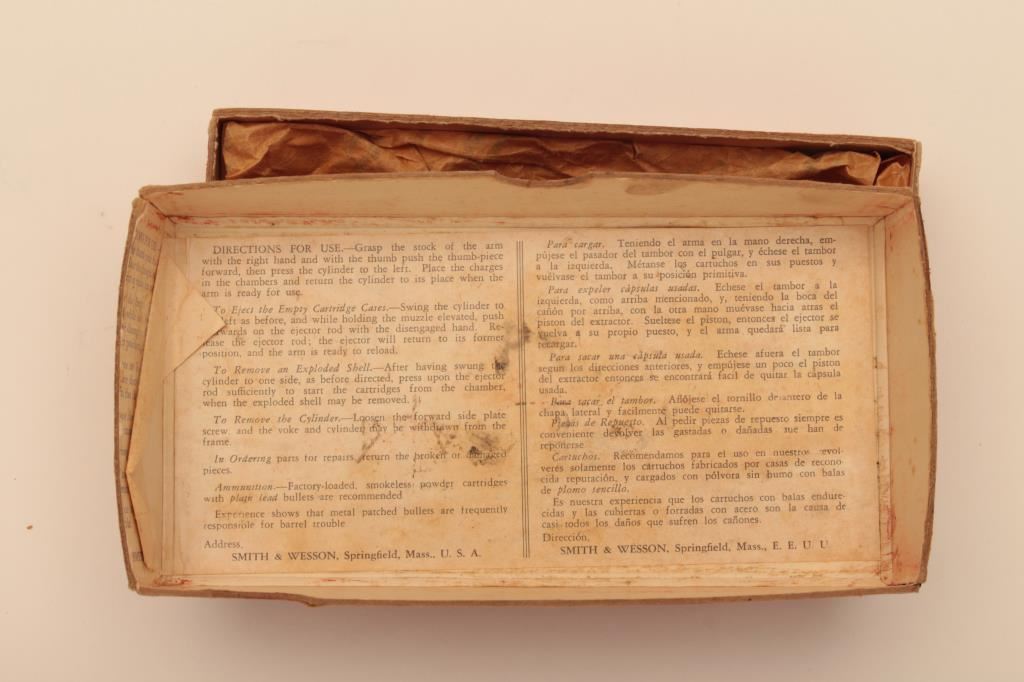 DIRECTIONS FOR USE.—Grasp the stock of the arm
with the right hand and with the thumb push the thumb-piece
forward, then press the cylinder to the left. Place the charges
in the chambers and return the cylinder to its place when the
arm is ready for use.
To Eject the Empty Cartridge Cases.—Swing the cylinder to
left as before, and while holding the muzzle elevated, push
wards on the ejector rod with the disengaged hand. Re-
lease the ejector rod; the ejector will return to its former
position, and the arm is ready to reload.
To Remove an Exploded Shell.—After having swung the
cylinder to one side, as before directed, press upon the ejector
rod sufficiently to start the cartridges from the chamber,
when the exploded shell may be removed.
To Remove the Cylinder.—Loosen the forward side plate
screw, and the yoke and cylinder may be withdrawn from the
frame.
In Ordering parts for repairs, return the broken or damaged
pieces.
Ammunition.—Factory-loaded, smokeless powder cartridges
with plain lead bullets are recommended
Experience shows that metal patched bullets are frequently
responsible for barrel trouble
Address,
SMITH & WESSON, Springfield, Mass., U. S. A.
Para cargar. Teniendo el arma en la mano derecha, em-
pújese el pasador del tambor con el pulgar, y échese el tambor
a la izquierda. Métanse los cartuchos en sus puestos y
vuélvase el tambor a su posición primitiva.
Para expeler cápsulas usadas. Echese el tambor a la
izquierda, como arriba mencionado, y, teniendo la boca del
cañón por arriba, con la otra mano muévase hacia atras el
piston del extractor. Sueltese el piston, entonces el ejector se
vuelva a su propio puesto, y el arma quedará lista para
recargar.
Para sacar una cápsula usada. Echese afuera el tambor
segun los direcciones anteriores, y empújese un poco el piston
del extractor entonces se encontrará facil de quitar la cápsula
usada.
Para sacar el tambor. Aflójese el tornillo delantero de la
chapa lateral y facilmente puede quitarse.
Piezas de Repuesto. Al pedir piezas de repuesto siempre es
conveniente devolver las gastadas o dañadas que han de
reponerse
Cartuchos. Recomendamos para el uso en nuestros revol-
veres solamente los cartuchos fabricados por casas de recono-
cida reputación, y cargados con pólvora sin humo con balas
de plomo sencillo.
Es nuestra experiencia que los cartuchos con balas endure-
cidas y las cubiertas o forradas con acero son la causa de
casi todos los daños que sufren los cañones.
Dirección,
SMITH & WESSON, Springfield, Mass., E. E. U. U.